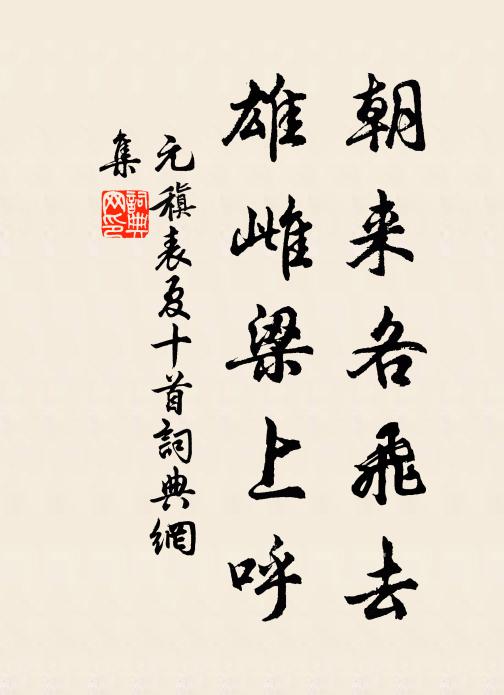 朝来各飛去
雄雌梁上呼
元稹表夏十首詞典網
集
詞典網印